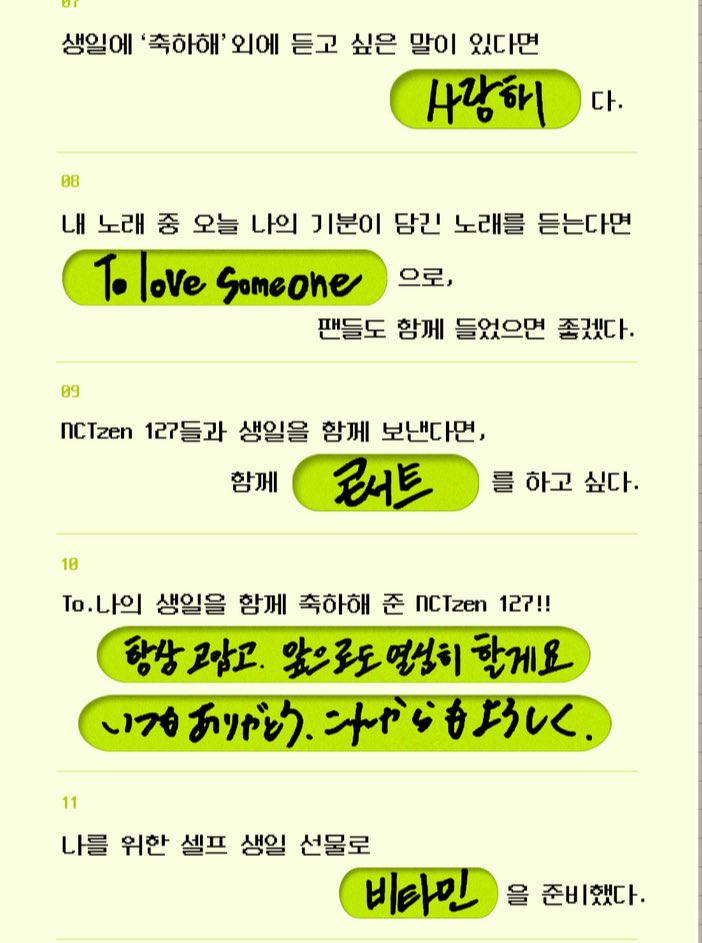 07
생일에 '축하해' 외에 듣고 싶은 말이 있다면
사랑하 다.
08
내 노래 중 오늘 나의 기분이 담긴 노래를 듣는다면
To love someone 으로,
팬들도 함께 들었으면 좋겠다.
09
NCTzen 127들과 생일을 함께 보낸다면,
함께 콘서트 를 하고 싶다.
10
To.나의 생일을 함께 축하해 준 NCTzen 127!!
항상 고맙고. 앞으로도 열심히 할게요
いつもありがとう. これからもよろしく.
11
나를 위한 셀프 생일 선물로
비타민 을 준비했다.